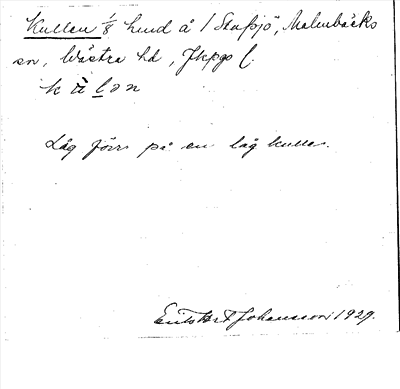 Kullen 1/8 hmd å 1 Stensjö, Malmbäcks
sn, Västra hd, Jkpgs l.
k ù l ə n
Låg förr på en låg kulle.
Johansson 1929.